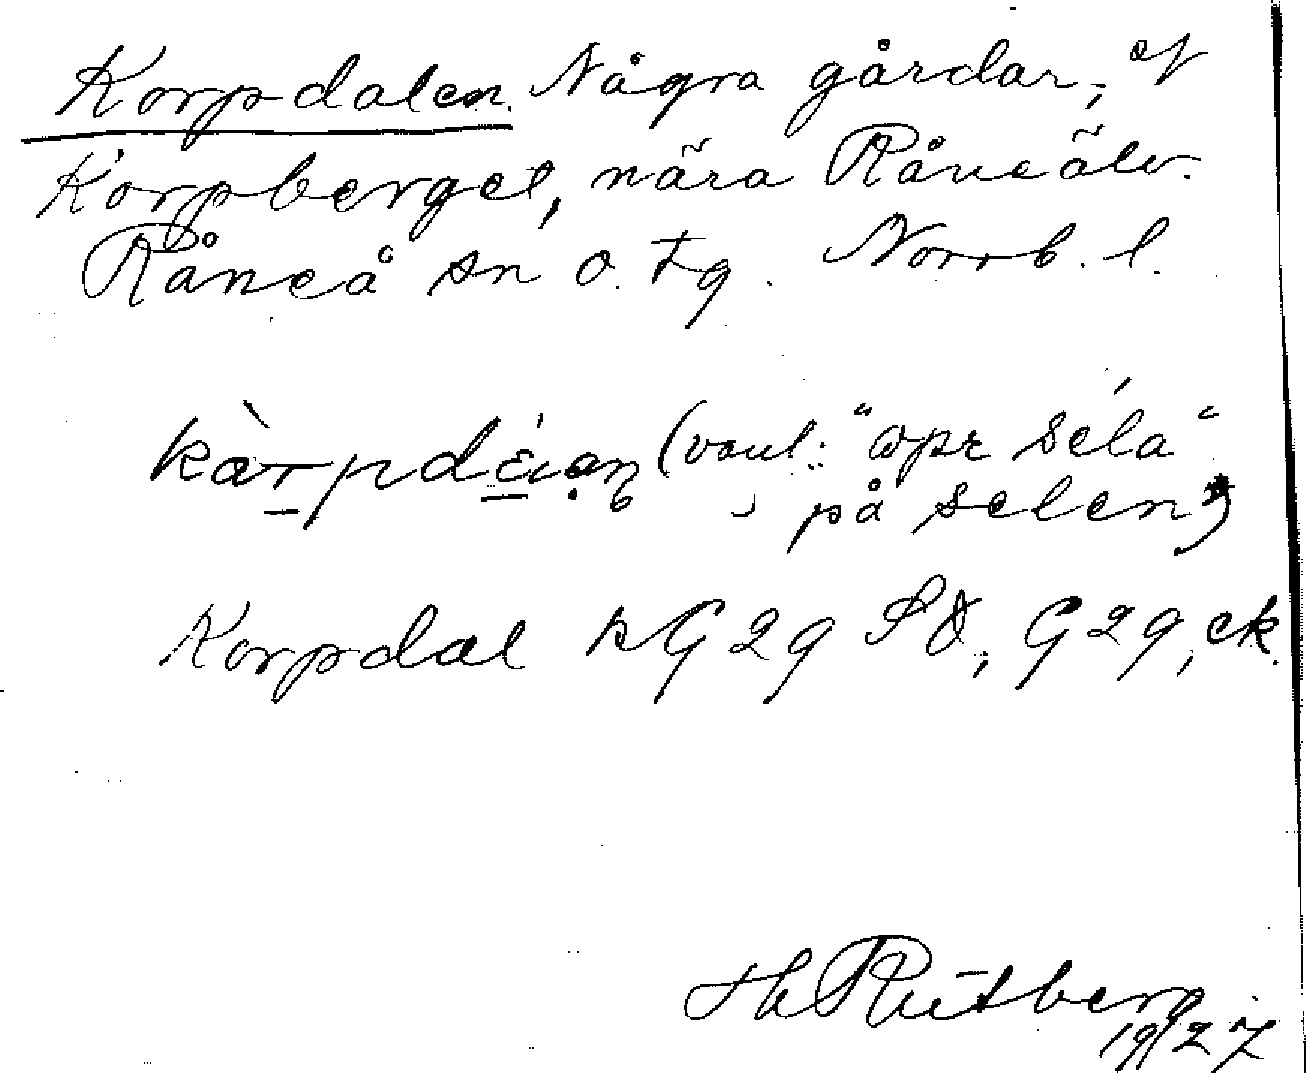 Korpdalen. Några gårdar, ⁠N
Korpberget, nära Råneälv.
Råneå sn o. tg. Norrb. l.
kàrpdέιan (vanl. "opr séla"
på selen)
Korpdal k G 29 SO, G 29, ek.
Th Rutberg
1927